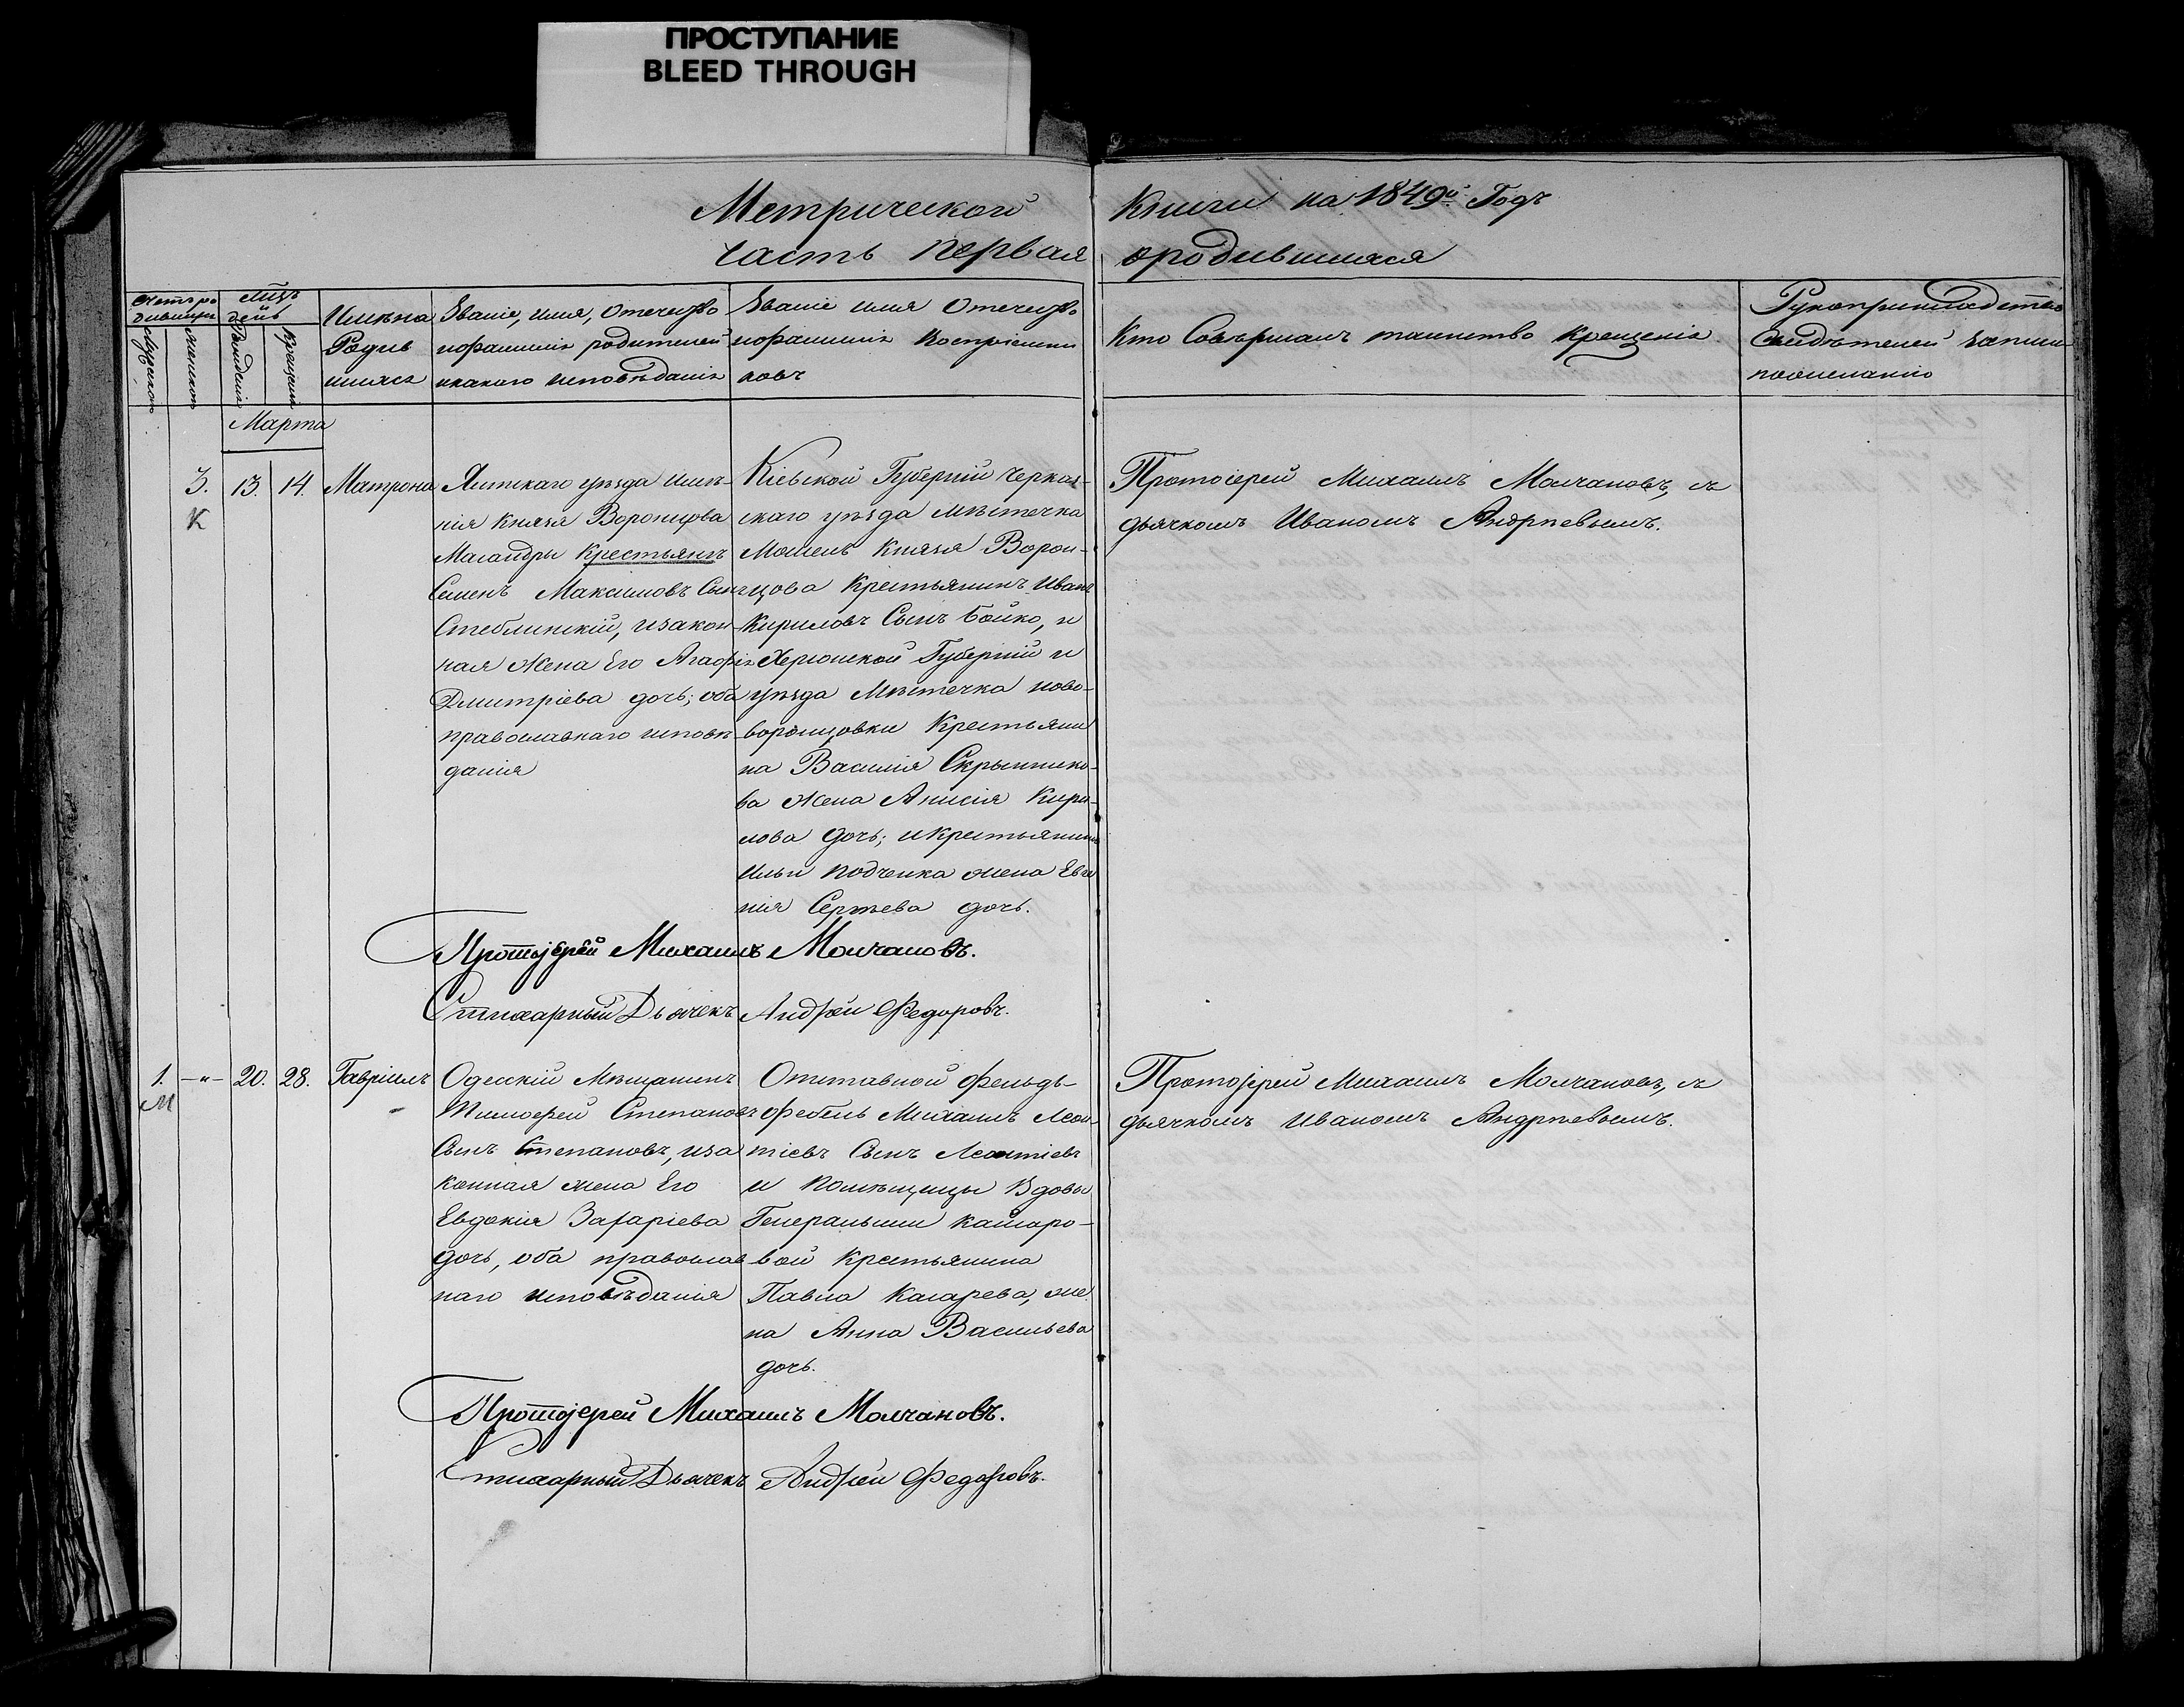 ПРОСТУПАНИЕ
BLEED THROUGH
Метрической Книги на 1849й Годъ
часть первая ородившихся
Счетъ ро
дившихся
Мужеска
Женска
Мцъ
день
Рожденія
Крещенія
Имѣна
Родив
шихся
Званіе, имя, Отечество
ифамилія родителей
икакого исповѣданія
Званіе имя Отечество
ифамилія Воспріемни
ковъ
Кто Совершалъ таинство Крещенія
Рукоприкладство
Свидѣтелей записи
пожеланію
Марта
3.
К
13.
14.
Матрона
Ялтскаго уѣзда имѣ-
нія Князя Воронцова
Масандры Крестьянъ
Семенъ Максимовъ Сынъ
Стеблинскій, изакон-
ная жена Его Агафія
Дмитріева дочь; оба
православнаго исповѣ
данія
Кіевской Губерніи Черкас-
скаго уѣзда мѣстечка
Мошенъ Князя Ворон-
цова Крестьянинъ Иванъ
Кириловъ Сынъ Бойко, и
Херсонской Губерніи и
уѣзда Мѣстечка ново-
воронцовки Крестьяни
на Василія Скрыннико-
ва жена Анисія Кири-
лова дочь; икрестьянина
Ильи Подченка жена Евге
нія Сергѣева дочь.
Протоіерей Михаилъ Молчановъ, съ
дьячкомъ Иваномъ Андрѣевымъ.
Протоjерей Михаилъ Молчановъ.
Стихарный Дьячекъ Андрей Федоровъ.
1.
М
-"-
20.
28.
Гавріилъ
Одесскій Мѣщанинъ
Тимофей Степановъ
Сынъ Степановъ, иза
конная жена Его
Евдокія Захаріева
дочь, оба православ
наго исповѣданія
Отставной фельдь-
фебель Михаилъ Леон-
тіевъ Сынъ Леонтіевъ
и Помѣщицы Вдовы
Генеральши Кайсаро-
вой Крестьянина
Павла Касарева, же
на Анна Васильева
дочь.
Протоjерей Михаилъ Молчановъ, съ
дьячкомъ Иваномъ Андрѣевымъ.
Протоjерей Михаилъ Молчановъ.
Стихарный Дьячекъ Андрей Федоровъ.